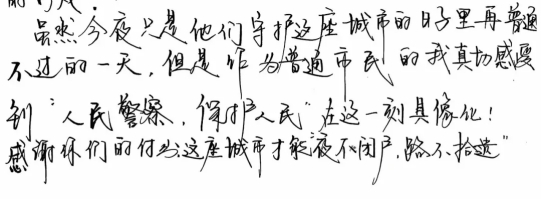 虽然今夜只是他们守护这座城市的日子里再普通
不过的一天，但是作为普通市民的我真切感受
到“人民警察，保护人民”在这一刻具像化！
感谢你们的付出这座城市才能“夜不闭户，路不拾遗”